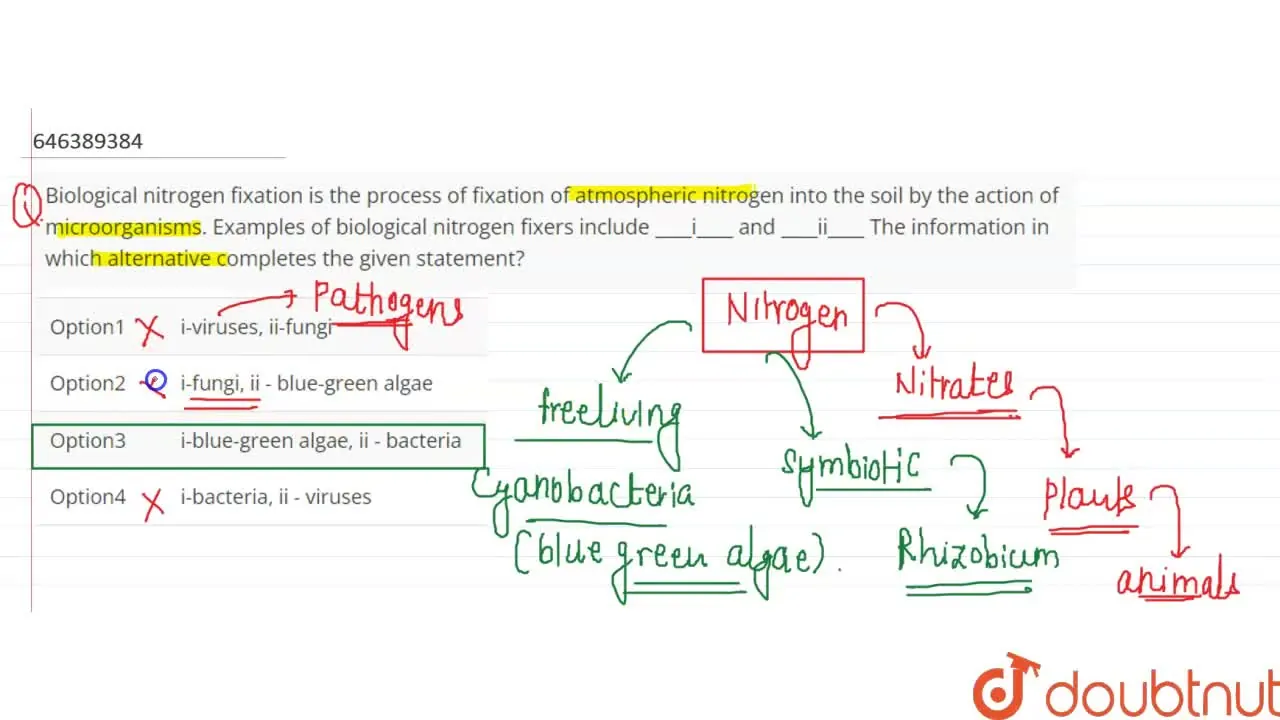 646389384
Q
Biological nitrogen fixation is the process of fixation of atmospheric nitrogen into the soil by the action of
microorganisms. Examples of biological nitrogen fixers include ____i____ and ____ii____ The information in
which alternative completes the given statement?
Pathogens
Option1 X i-viruses, ii-fungi
Option2 i-fungi, ii - blue-green algae
Option3 i-blue-green algae, ii - bacteria
Option4 X i-bacteria, ii - viruses
Nitrogen
Nitrates
freeliving
symbiotic
Cyanobacteria
Plants
(blue green algae).
Rhizobium
animals
doubtnut